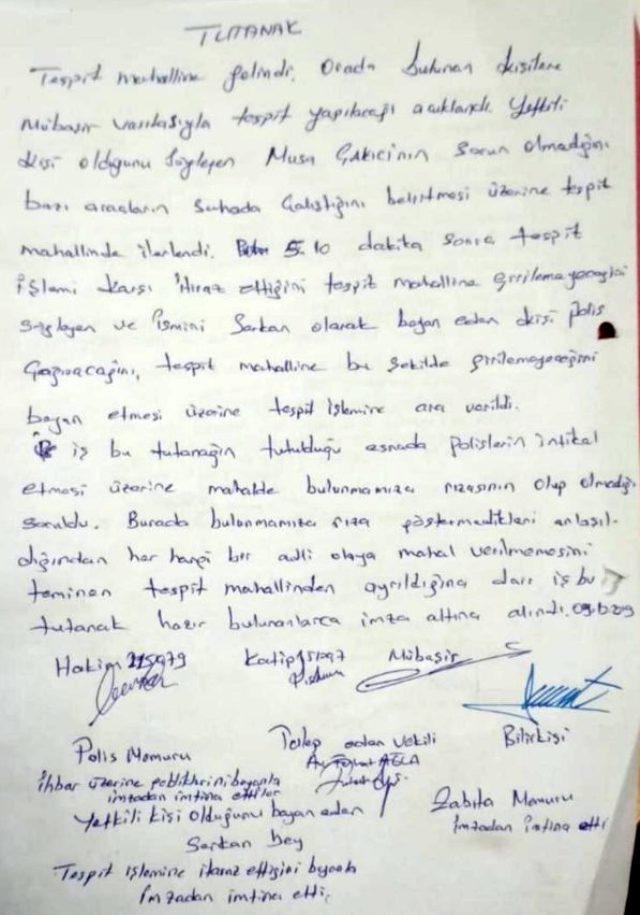 TUTANAK
Tespit mahalline gelindi. Orada bulunan kişilere
Mübaşir vasıtasıyla tespit yapılacağı açıklandı. Yetkili
kişi olduğunu söyleyen Musa Çakıcı'nın sorun olmadığını
bazı araçların sahada çalıştığını belirtmesi üzerine tespit
mahallinde ilerlendi. 5-10 dakika sonra tespit
işlemi karşı itiraz ettiğini tespit mahalline girilemeyeceğini
söyleyen ve ismini Serkan olarak beyan eden kişi polis
çağıracağını, tespit mahalline bu şekilde girilemeyeceğini
beyan etmesi üzerine tespit işlemine ara verildi.
iş bu tutanağın tutulduğu esnada polislerin intikal
etmesi üzerine mahalde bulunmamıza rızasının olup olmadığı
soruldu. Burada bulunmamıza rıza göstermedikleri anlaşıl-
dığından her hangi bir adli olaya mahal verilmemesini
teminen tespit mahallinden ayrıldığına dair iş bu
tutanak hazır bulunanlarca imza altına alındı.
Hakim Katip Mübaşir
Polis Memuru Talep eden vekili Bilirkişi
Av.
ihbar üzerine geldiklerini beyanla
imzadan imtina ettiler
Zabıta Memuru
imzadan imtina etti
Yetkili kişi olduğunu beyan eden
Serkan bey
Tespit işlemine itiraz ettiğini beyanla
imzadan imtina etti.